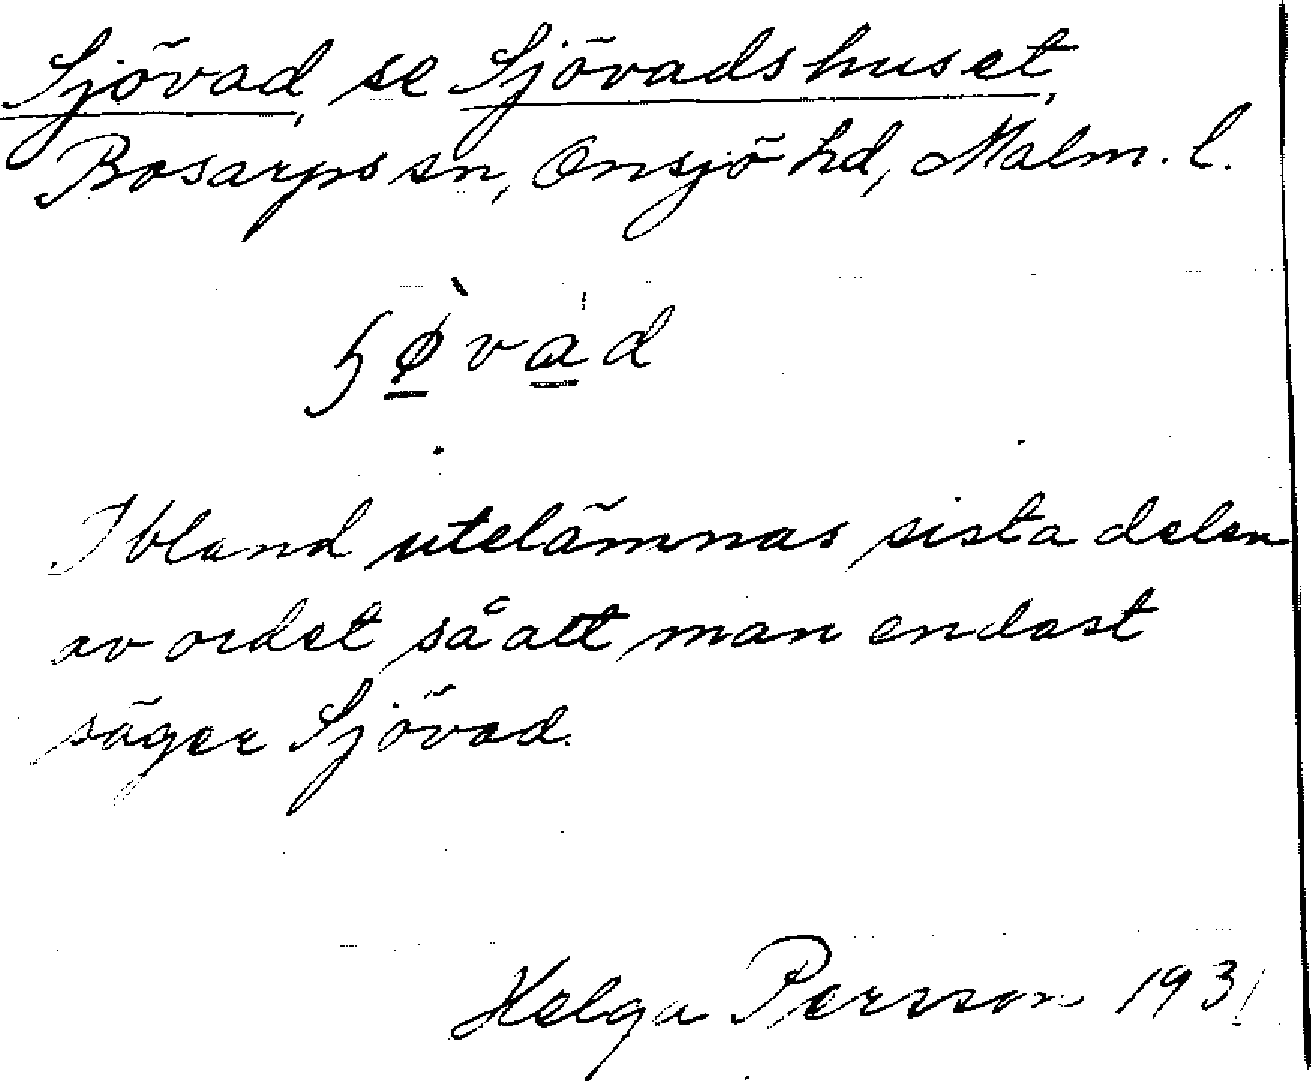 Sjövad, se Sjövadshuset,
Bosarps sn, Onsjö hd, Malm. l.
ʃø̠̀va̠d
Ibland utelämnas sista delen
av ordet så att man endast
säger Sjövad.
Helga Persson 1931